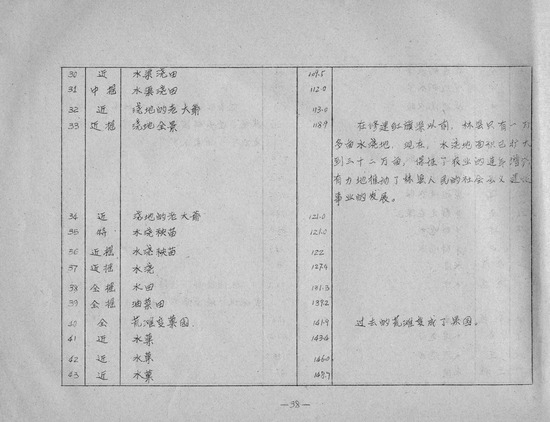 30 近 水渠浇田 109.5
31 中摇 水渠浇田 112.0
32 近 浇地的老大爷 113.0
33 近摇 浇地全景 118.9 在修建红旗渠以前，林县只有一万
多亩水浇地，现在，水浇地面积已扩大
到六十二万亩，保证了农业的连年增产
有力地推动了林县人民的社会主义建设
事业的发展。
34 近 浇地的老大爷 121.0
35 特 水浇秧苗 121.0
36 近摇 水浇秧苗 122
37 摇 水浇 127.9
38 全摇 水田 131.3
39 全摇 油菜田 139.2
40 全 荒滩变果园 141.9 过去的荒滩变成了果园。
41 近 水菓 143.4
42 近 水菓 146.0
43 近 水菓 148.7
—38—